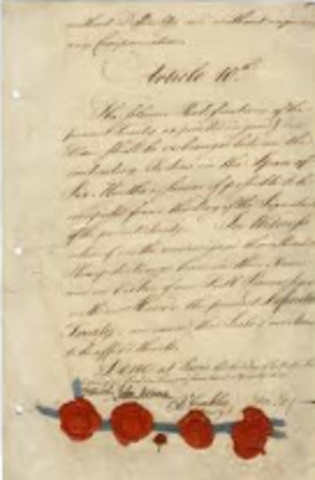 without Difficulty and without requiring
any Compensation.
Article 10th.
The solemn Ratifications of the
present Treaty expedited in good &
Form shall be exchanged between the
contracting Parties in the Space of
Six Months or sooner if possible to be
computed from the Day of the Signature
of the present Treaty. In Witness
whereof we the undersigned their Ministers
Plenipotentiary have in their Name
and in Virtue of our Full Powers
with our Hands the present Definitive
Treaty, and caused the Seals of our Arms
to be affix'd thereto.
Done at Paris,
John Adams
B Franklin John Jay